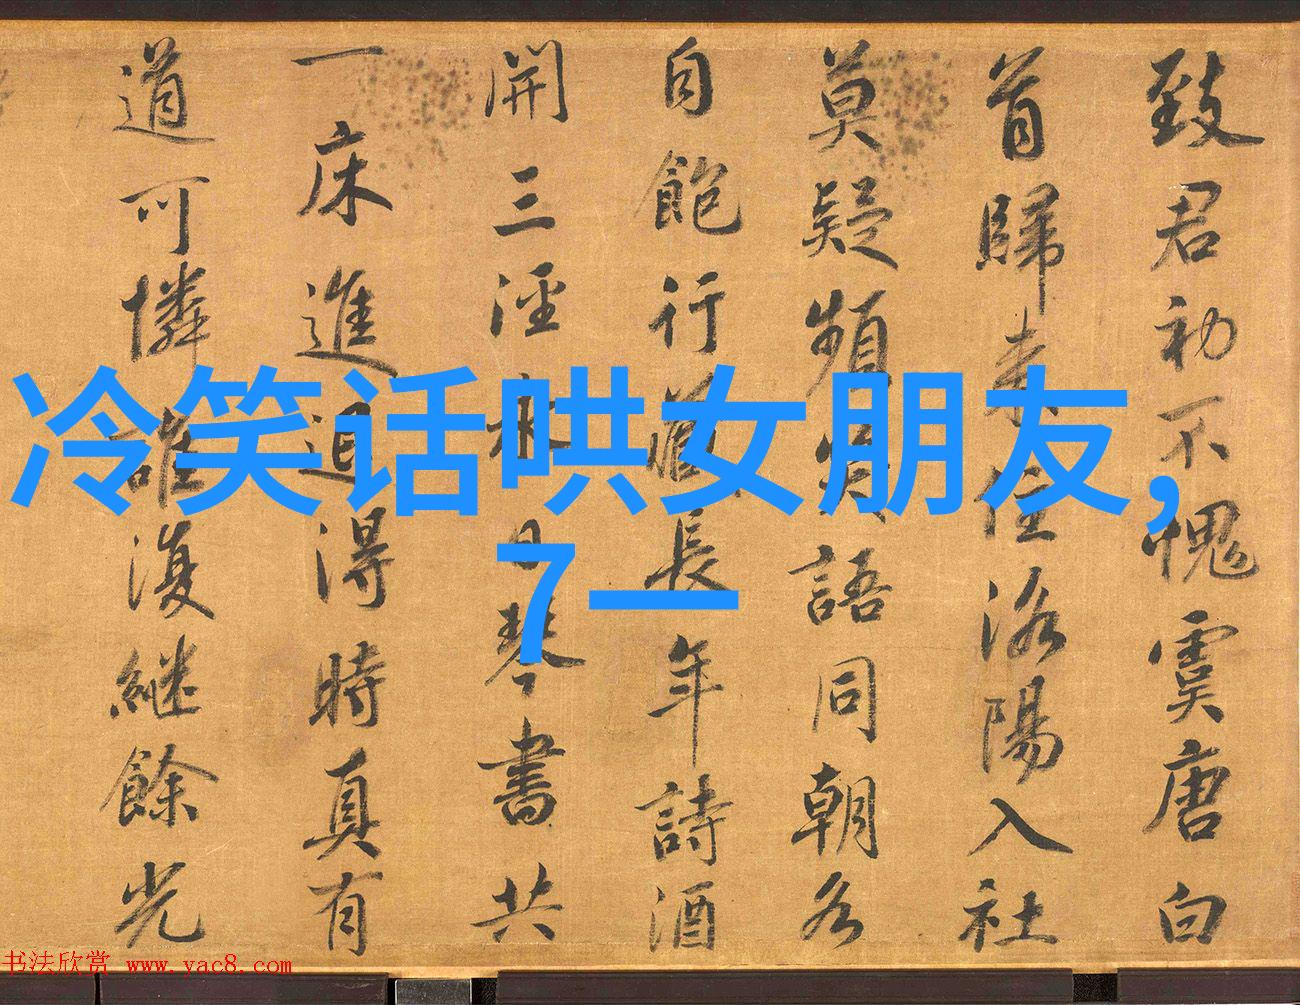 致君初不愧虞唐白
首歸来住洛陽入社
莫疑頻笑語同朝各
自飽行藏長年詩酒
開三涇永日琴書共
一床進退得時真有
道可憐誰復繼餘光
冷笑话哄女朋友,
7一
书法欣赏 www.yac8.com